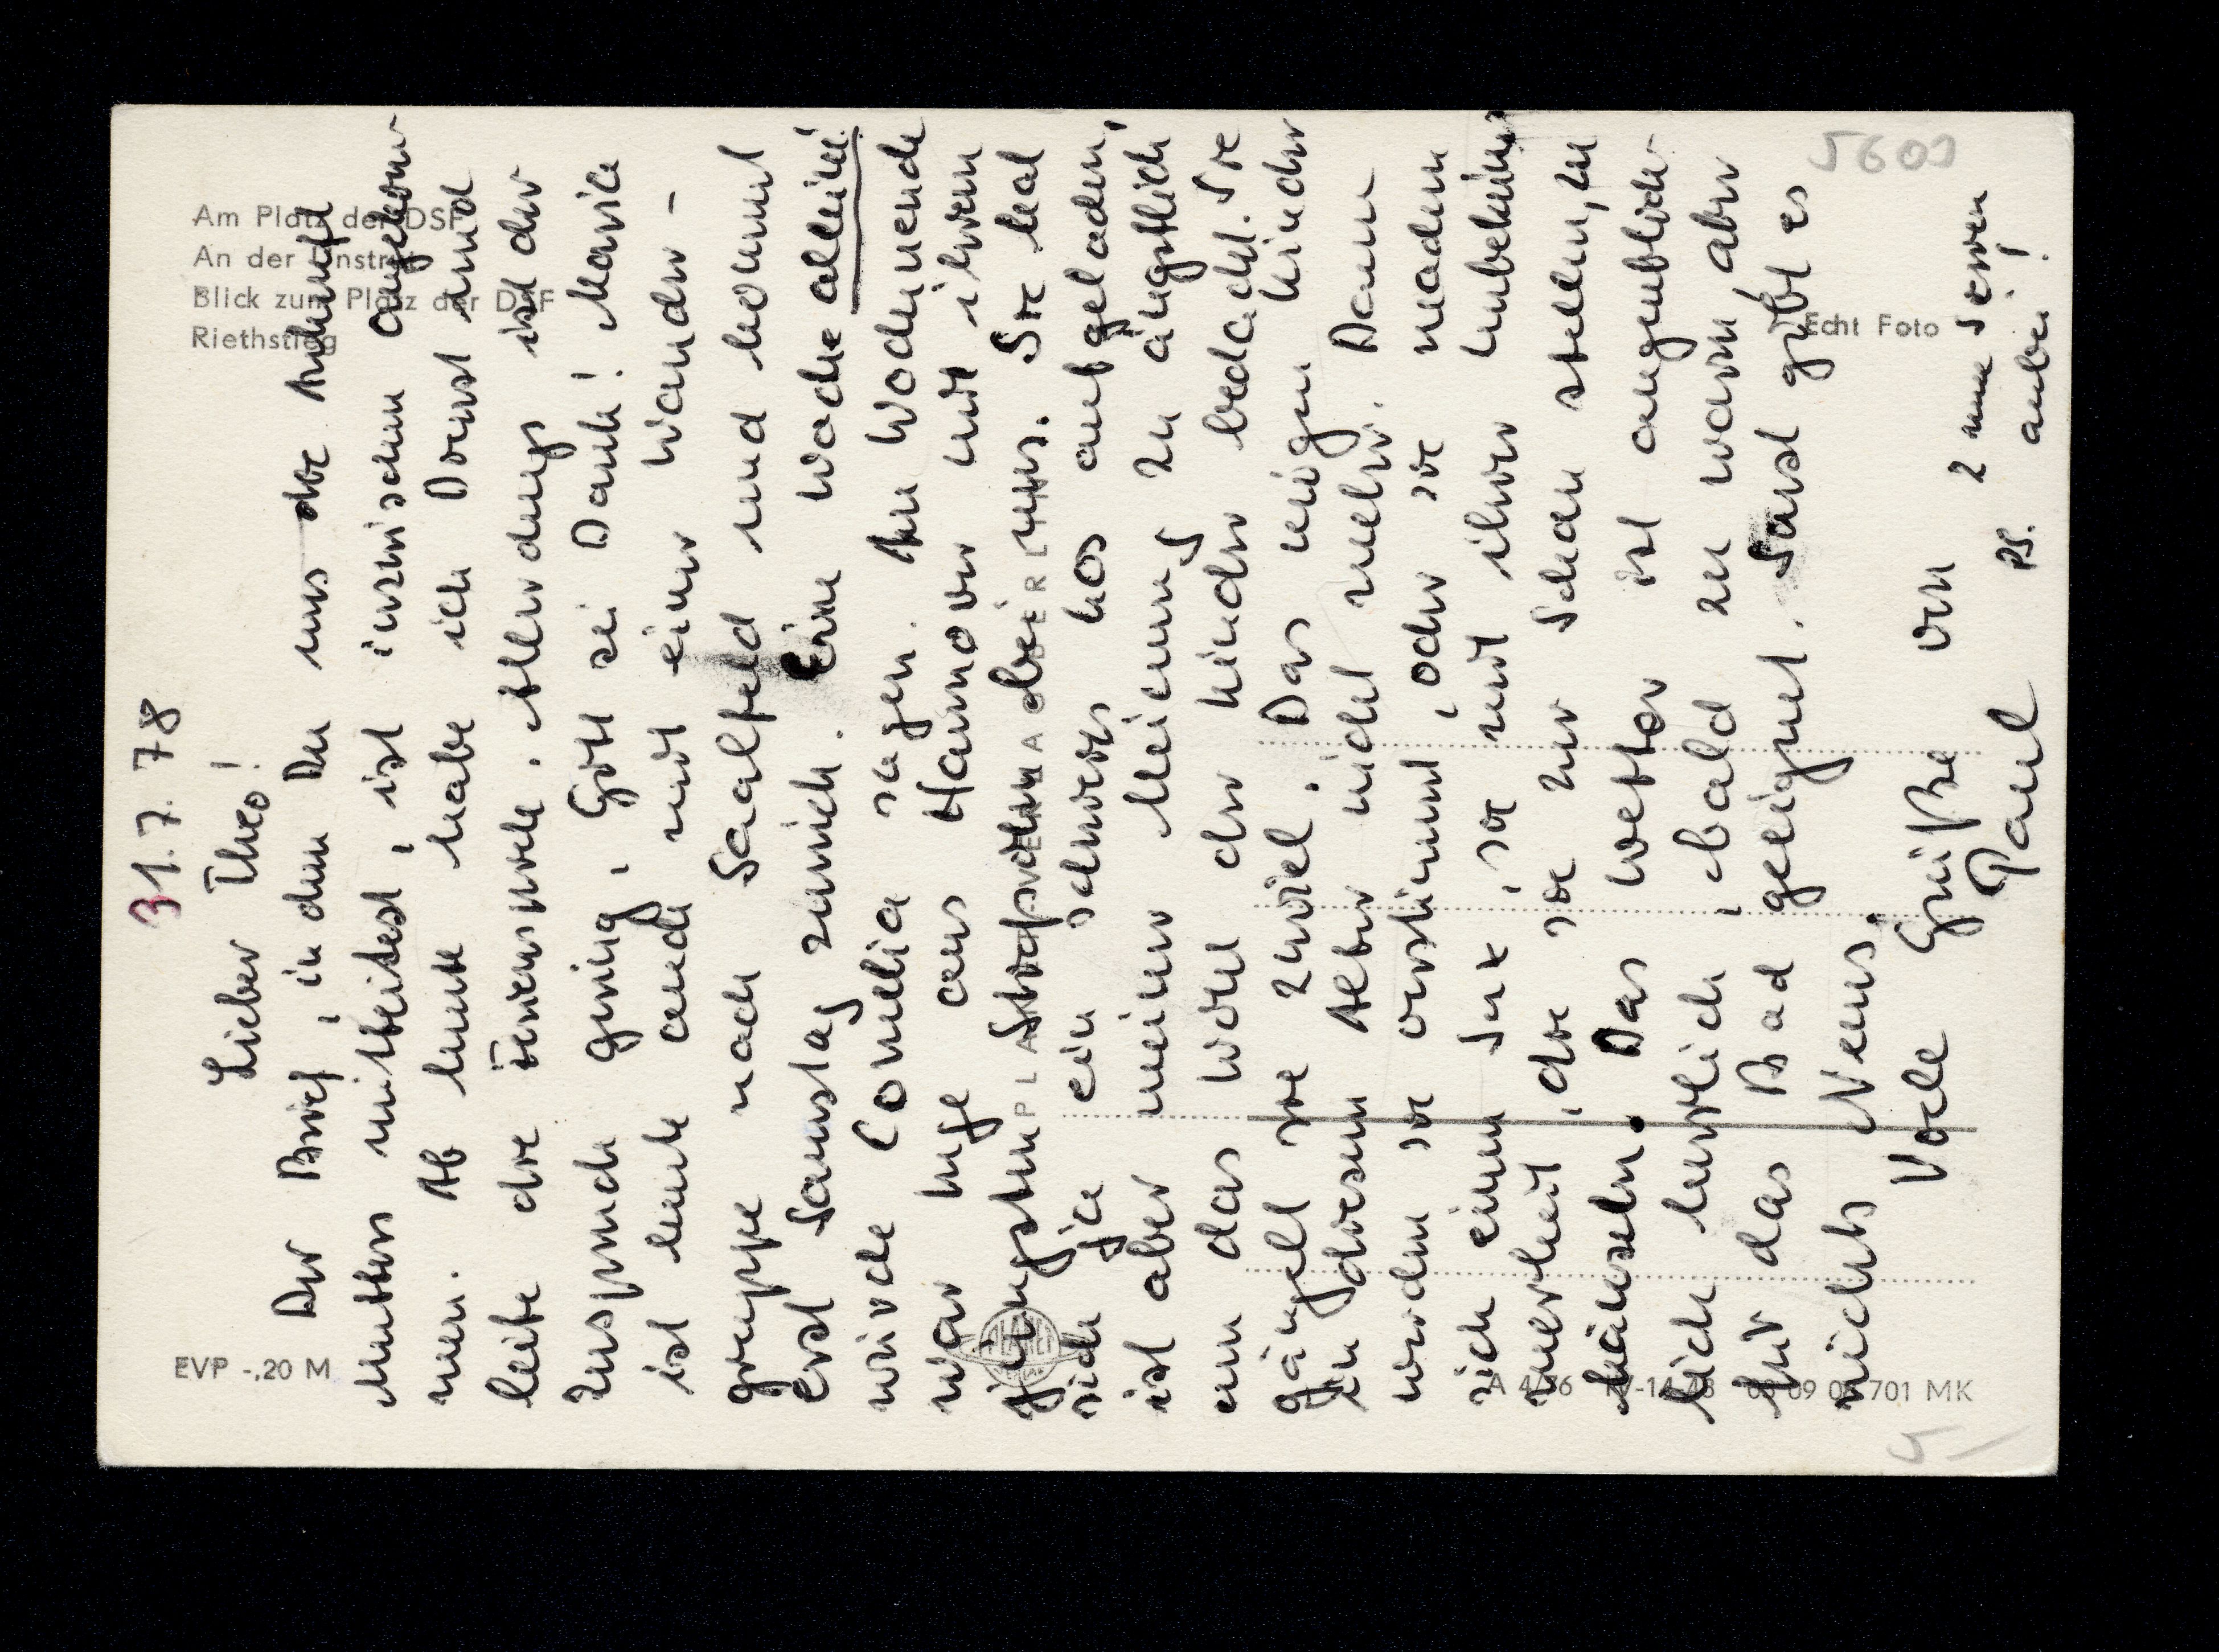 31. 7. 78
Lieber Theo!
Der Brief, in dem Du uns die Ankunft
Mutters mitteilest, ist inzwischen angekom-
men. Ab heute habe ich Dienst und
leite die Ferienspiele. Allerdings ist der
Zuspruch gering, Gott sei Dank! Marica
ist heute auch mit einer Wander-
gruppe nach Saalfeld und kommt
erst Samstag zurück. Eine Woche allein!
würde Cornelia sagen. Am Wochenende
war Inge aus Hannover mit ihrem
jüngsten bei uns. Sie hat
sich ja ein schweres Los aufgeladen,
ist aber meiner Meinung zu ängstlich
um das Wohl der Kinder bedacht. Sie
gängelt sie zuviel. Das mögen Kinder
in diesem Alter nicht mehr. Dann
werden sie verstimmt, oder sie machen
sich einen Jux, sie mit ihrer Unbeküm-
merheit, die sie zur Schau stellen, zu
hänseln. Das Wetter ist augenblick-
lich herrlich, bald zu warm, aber
für das Bad geeignet. Sonst gibt es
nichts Neues.
Viele Grüße von
Paul
PS. 2 mm Serien
anbei!
Am Platz der DSF
An der Unstrut
Blick zum Platz der DSF
Riethstieg
Echt Foto
EVP -.20 M
PLANET
701 MK
5609
5